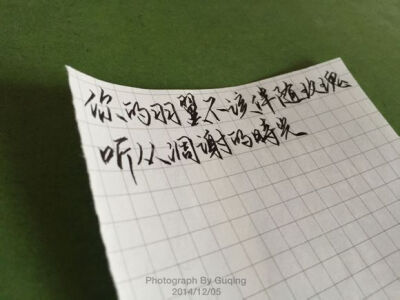 你的羽翼不该伴随玫瑰
听从凋谢的時光
Photograph By Guqing
2014/12/05